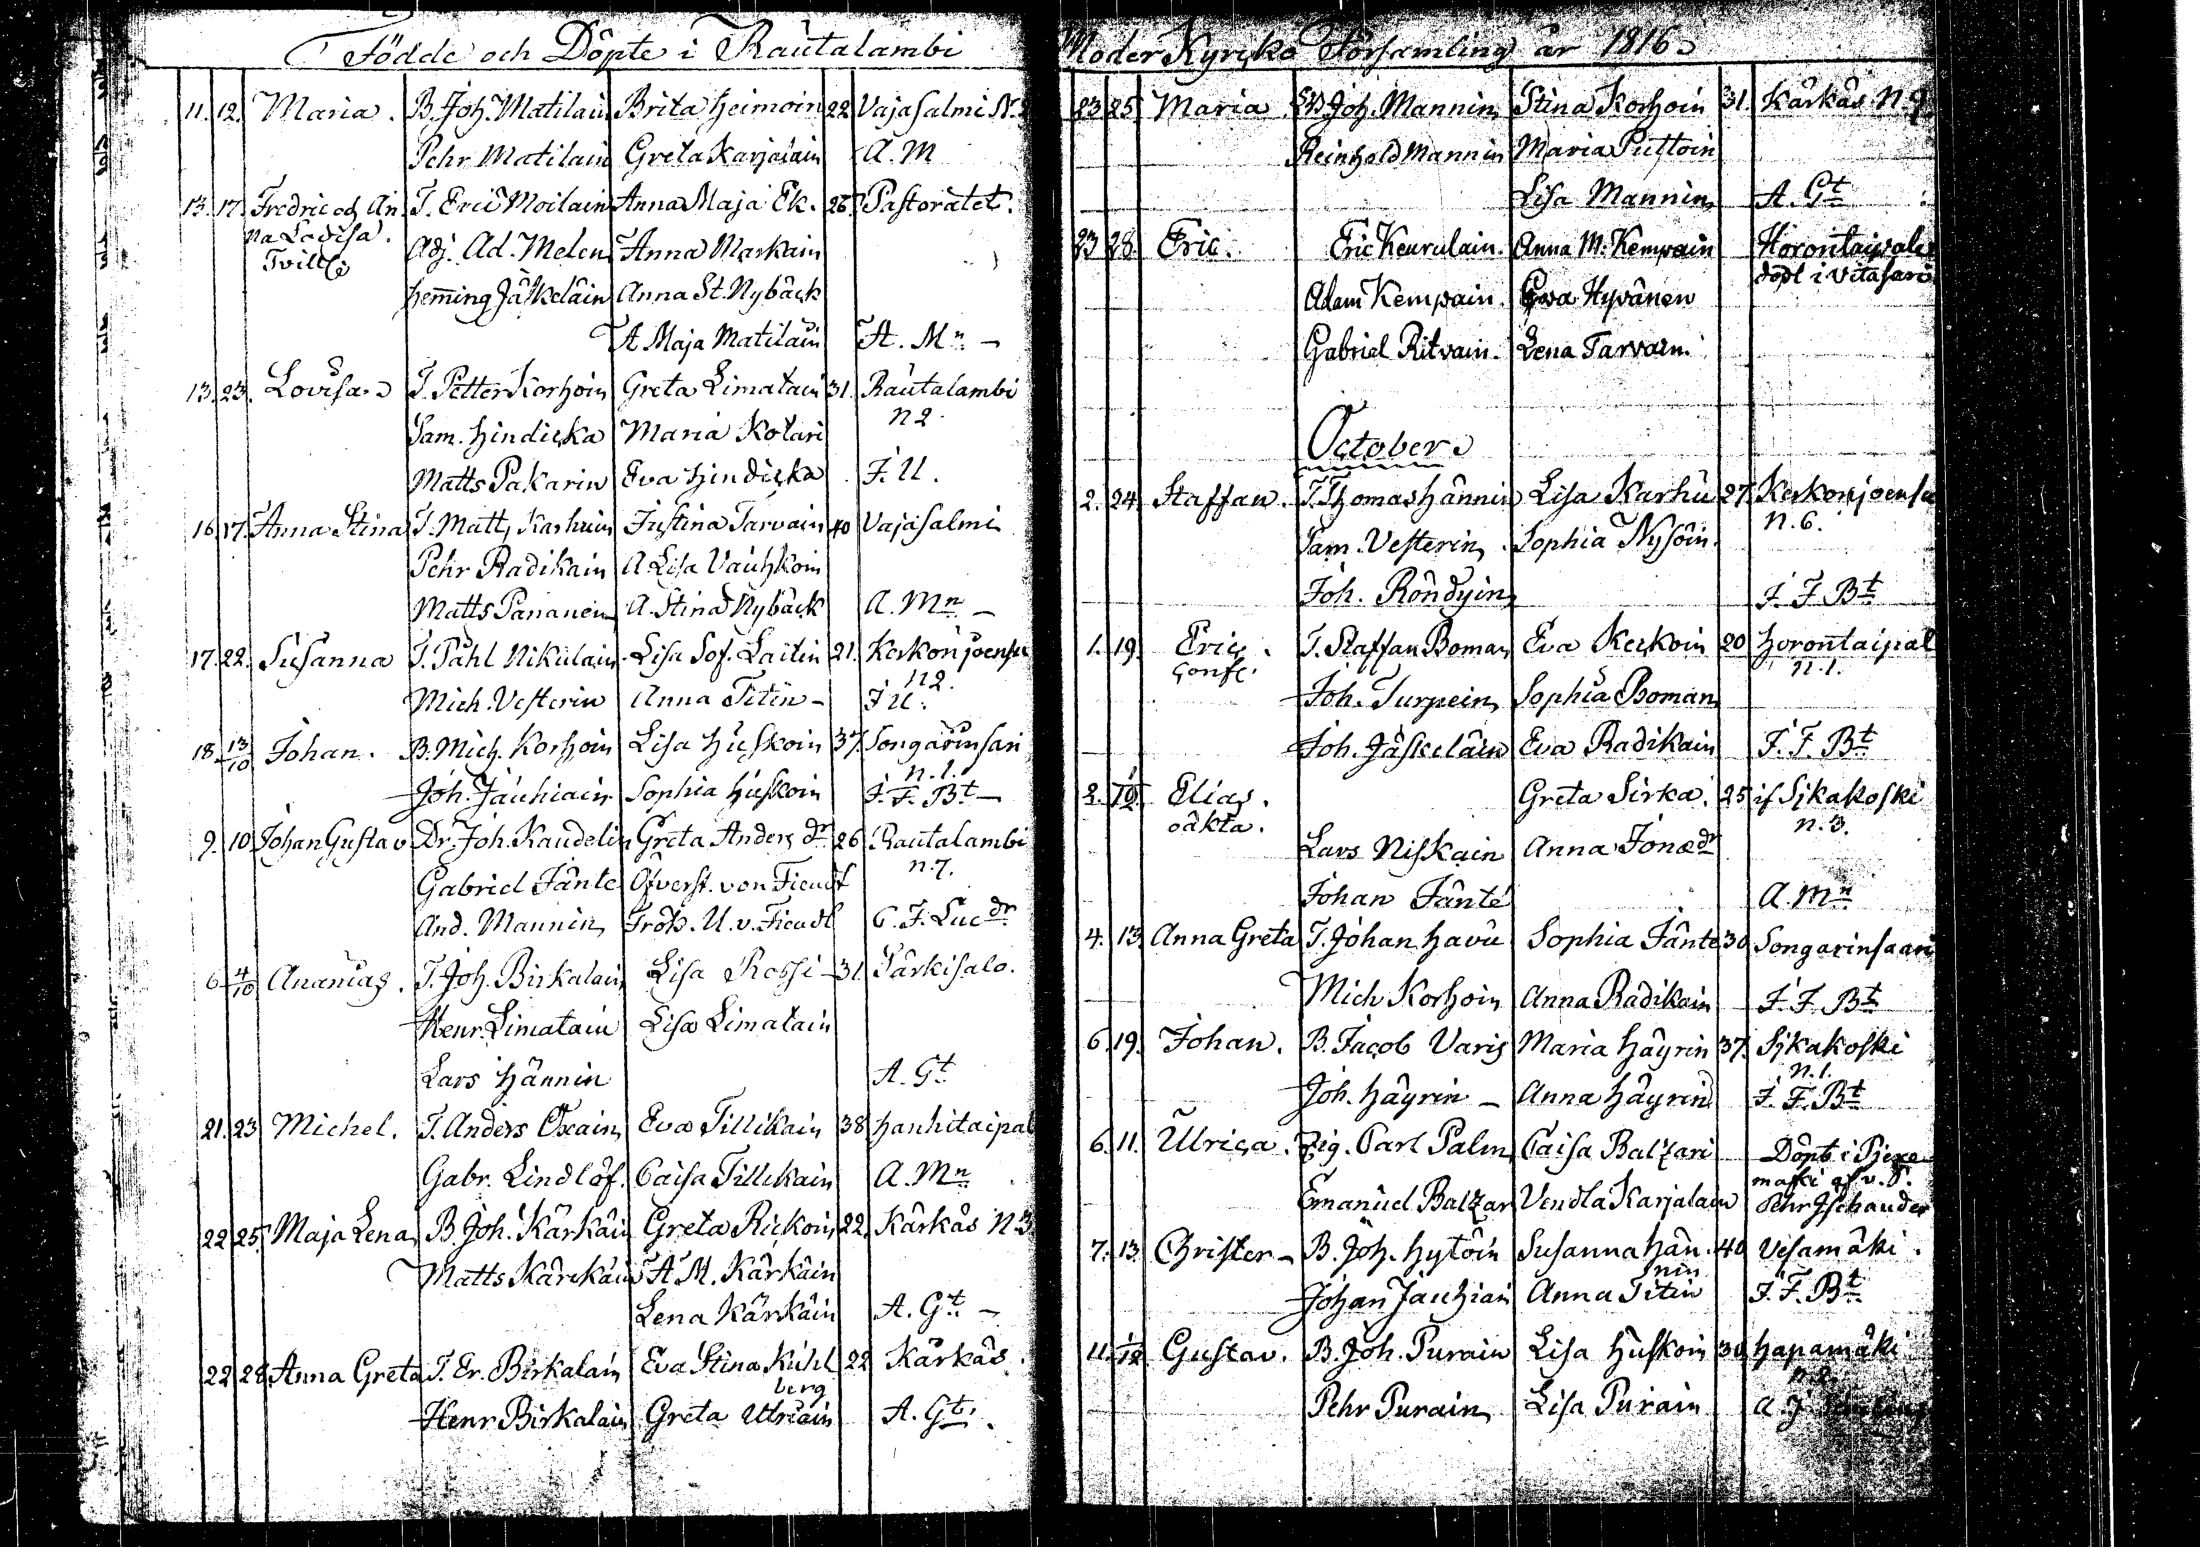 Födde och Döpte i Rautalambi
11. 12. Maria. B. Joh. Matilain Brita Heimoin 22 Vajasalmi N. 2
Pehr Matilain Greta Karjalain A. M
13. 17. Fredric och An T. Eric Moilain Anna Maja Ek. 26. Pastoratet.
na Lovisa. Adj. Ad. Melen Anna Markain
Tvill.
Heming Jäskeläin Anna St. Nybäck
A Maja Matilain A. Mn –
13. 23. Lovisa T. Petter Korhoin Greta Limatain 31. Rautalambi
n 2
Sam. Hindicka Maria Kotari
Matts Pakarin Eva Hindicka F. U.
16. 17. Anna Stina T. Matts Karhuin Justina Tarvain 40 Vajasalmi
Pehr Radikain A Lisa Vauhkoin
Matts Pananen A. Stina Nybäck A. Mn –
17. 22. Susanna T. Påhl Nikulain Lisa Sof. Laitin 21. Kerkonjoensu
n 2.
Mich. Vesterin Anna Titin – F U.
18. 13/10 Johan. B. Mich. Korhoin Lisa Huskoin 37. Songarinsari
n. 1.
Joh. Jauhiain Sophia Huskoin F. F. Bt –
9. 10 Johan Gustav Dr. Joh. Kaudelin Greta Anders dr 26 Rautalambi
n. 7.
Gabriel Jänte Öfverst. von Fieudt
And. Mannin Frök. U. v. Fieudt C. F. Luc dr
6 4/10 Ananias. T. Joh. Birkalain Lisa Rossi – 31. Särkisalo.
Henr. Limatain Lisa Limatain
Lars Hännin A. Gt
21. 23 Michel. T. Anders Oxain Eva Tillikain 38 Hanhitaipal
Gabr. Lindlöf. Caisa Tillikain A. Mn
22 25. Maja Lena B. Joh. Kärkäin Greta Rickoin 22. Kärkäs N. 3
Matts Kärckäin A M. Kärkäin
Lena Kärkäin A. Gt –
22 28. Anna Greta T. Er. Birkalain Eva Stina Kuhl 22 Kärkäs.
berg
Henr Birkalain Greta Utriain A. Gt.
Moder Kyrcko Församling år 1816
23 25 Maria Joh. Mannin Stina Korhoin 31. Kärkäs N. 9
Reinhold Mannin Maria Puttoin
Lisa Mannin A. Gt
23 28. Eric. Eric Keurulain. Anna M. Kempain Horontaipale
döpt i Vitasari
Adam Kempain. Eva Hyvänen
Gabriel Ritvain. Lena Tarvain.
October
2. 24. Staffan. T. Thomas Hännin Lisa Karhu 27. Kerkonjoensu
n. 6.
Sam. Vesterin. Sophia Nysöin.
Joh. Röndyin F. F. Bt
1. 19. Eric. T. Staffan Boman Eva Kerkoin 20 Horontaipal
n. 1.
Joh. Turpein Sophia Boman
Joh. Jäskeläin Eva Radikain F. F. Bt
2. Elias. Greta Sirka. 25 if. Sjkakoski
oäkta. n. 3.
Lars Niskain Anna Jonæ dr
Johan Jänté A. Mn
4. 13. Anna Greta T. Johan Havu Sophia Jänte 30 Songarinsaari
Mich Korhoin Anna Radikain F. F. Bt
6. 19. Johan. B. Jacob Varis Maria Häyrin 37. Sjkakoski
n. 1.
Joh. Häyrin – Anna Häyrin F. F. Bt
6. 11. Ulrica. Carl Palm Caisa Baltzari Döpt i Pjexe
mäki af v. P.
Emanuel Baltzar Vendla Karjalain Pehr Ischander
7. 13. Christer – B. Joh. Hytöin Susanna Hän 40 Vesamäki.
nin
Johan Jauhiain Anna Titin F. F. Bt
11. Gustav. B. Joh. Purain Lisa Huskoin 30 Hapamäki
n. 2.
Pehr Purain Lisa Purain